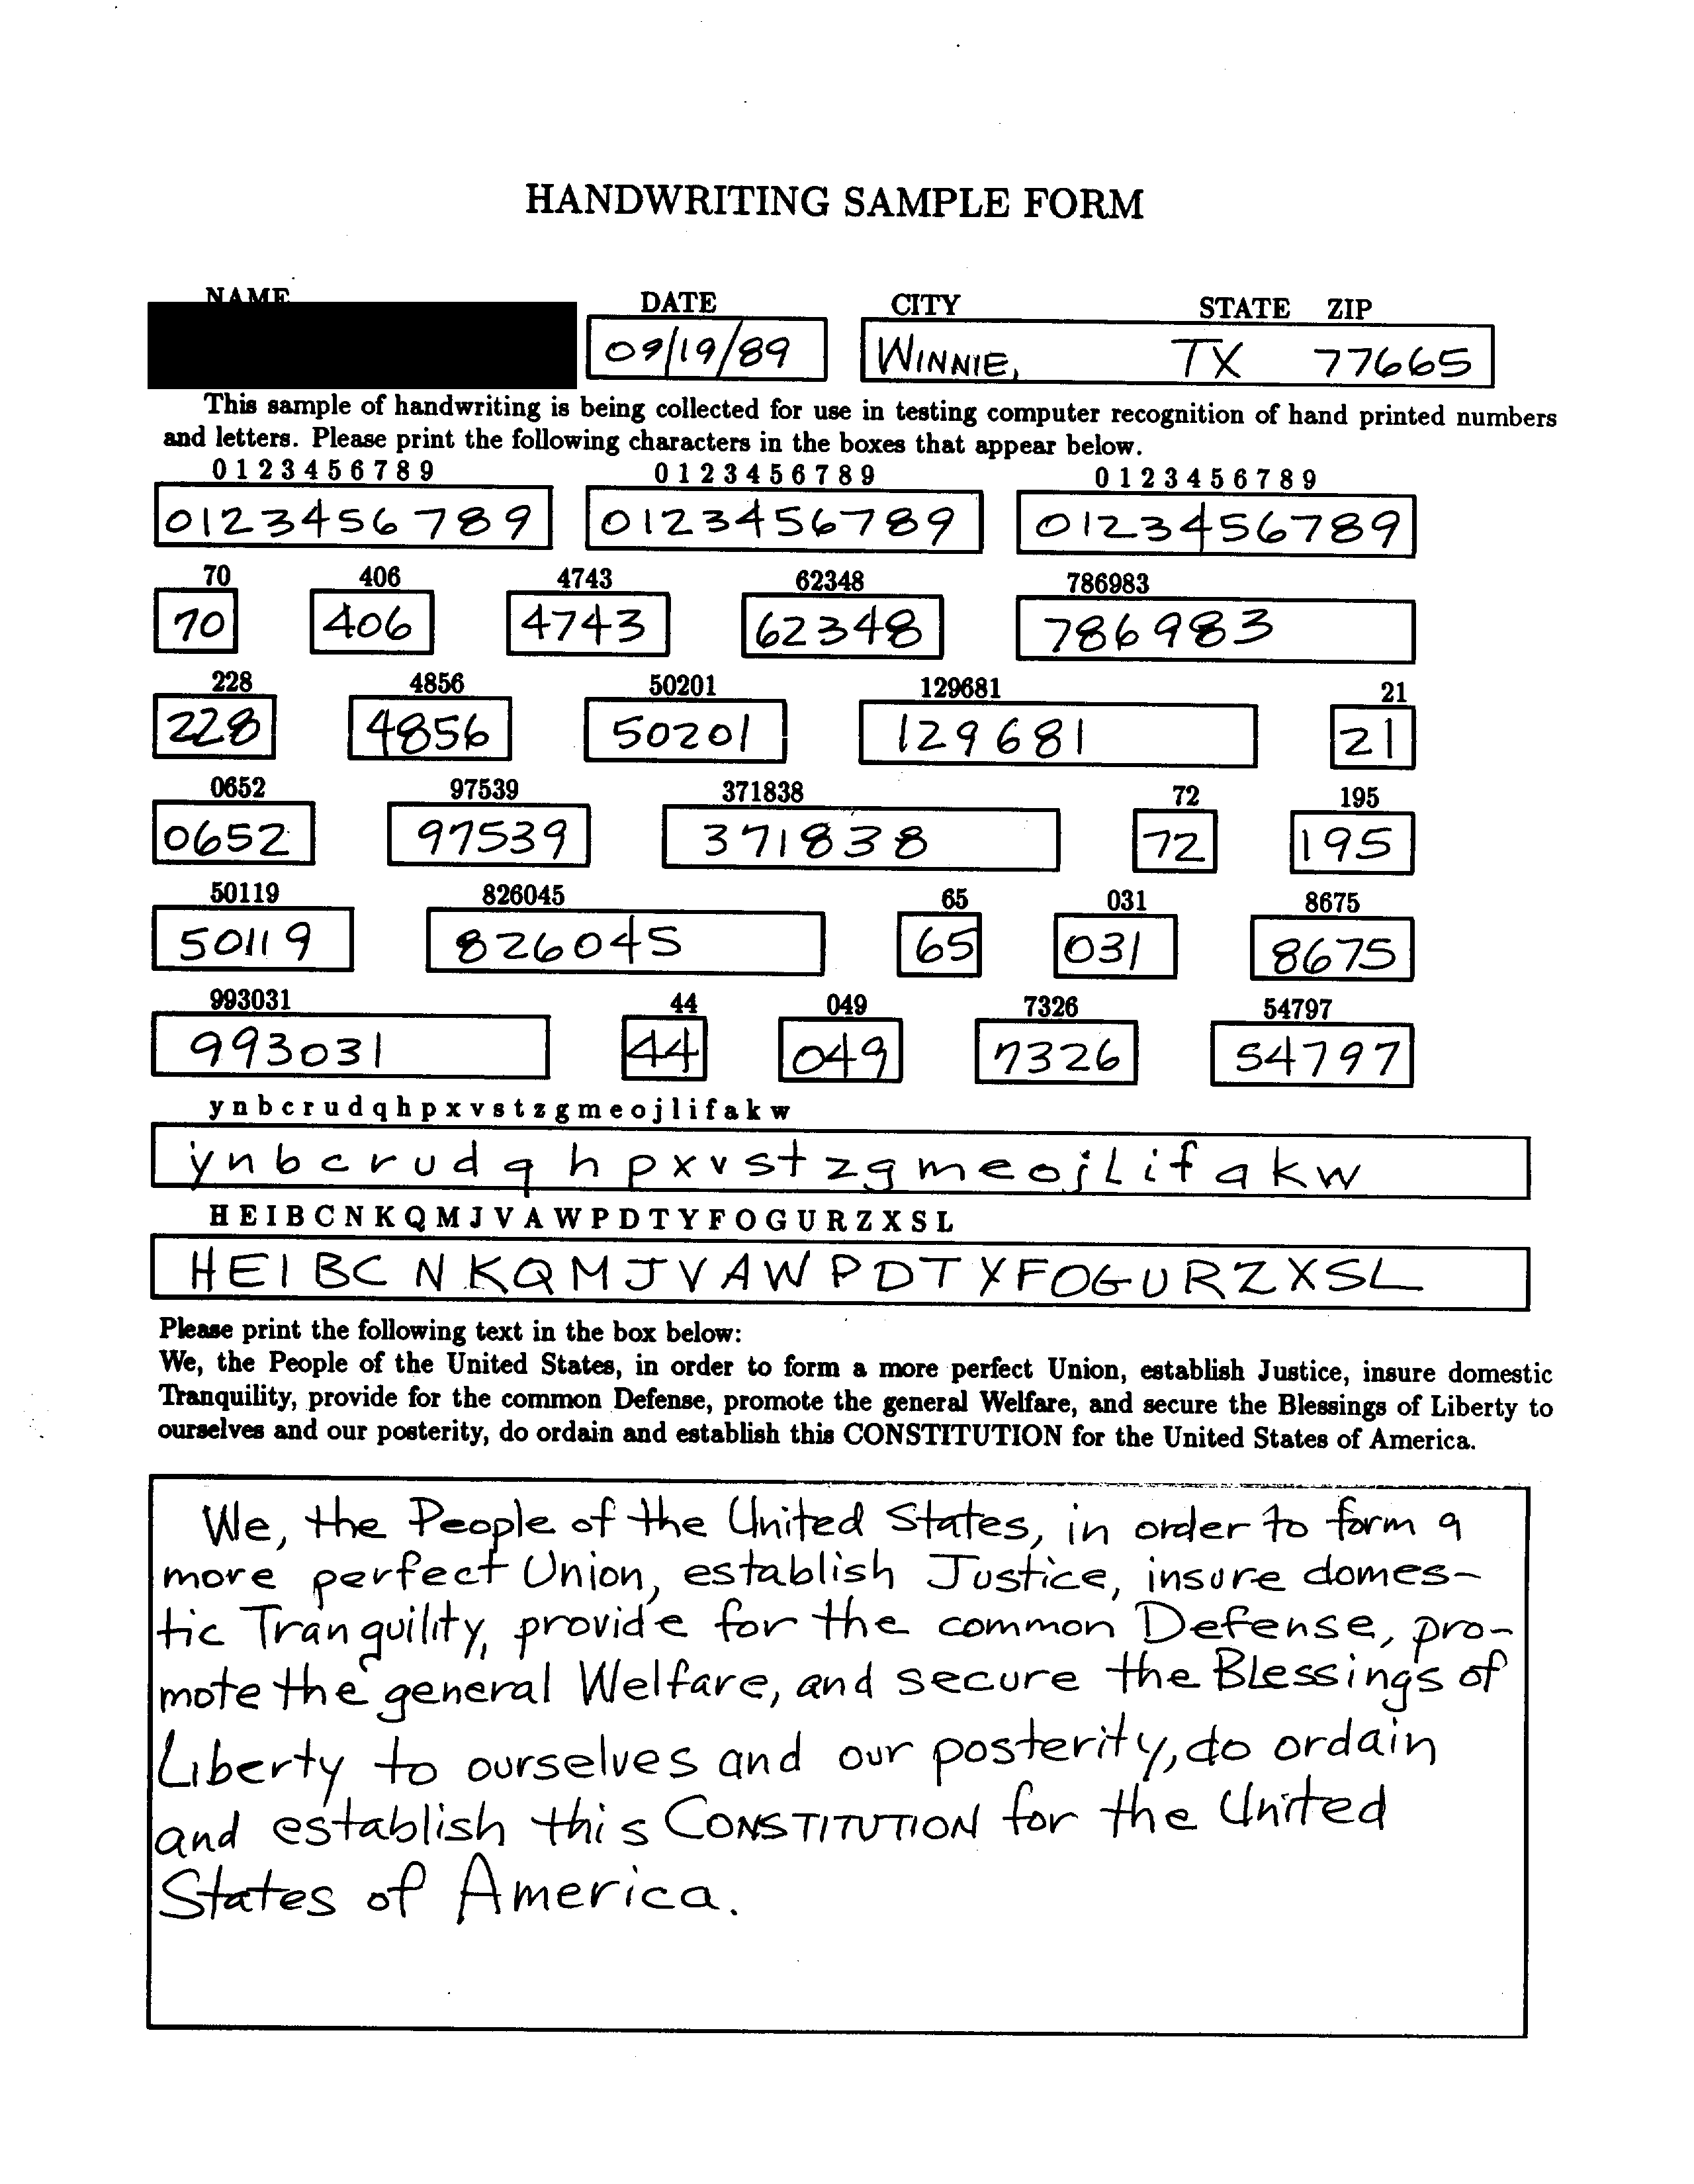 HANDWRITING SAMPLE FORM
NAME DATE CITY STATE ZIP
09/19/89 WINNIE, TX 77665
This sample of handwriting is being collected for use in testing computer recognition of hand printed numbers
and letters. Please print the following characters in the boxes that appear below.
0 1 2 3 4 5 6 7 8 9 0 1 2 3 4 5 6 7 8 9 0 1 2 3 4 5 6 7 8 9
0123456789 0123456789 0123456789
70 406 4743 62348 786983
70 406 4743 62348 786983
228 4856 50201 129681 21
228 4856 50201 129681 21
0652 97539 371838 72 195
0652 97539 371838 72 195
50119 826045 65 031 8675
50119 826045 65 031 8675
993031 44 049 7326 54797
993031 44 049 7326 54797
y n b c r u d q h p x v s t z g m e o j l i f a k w
y n b c r u d q h p x v s t z g m e o j L i f a k w
H E I B C N K Q M J V A W P D T Y F O G U R Z X S L
H E I B C N K Q M J V A W P D T Y F O G U R Z X S L
Please print the following text in the box below:
We, the People of the United States, in order to form a more perfect Union, establish Justice, insure domestic
Tranquility, provide for the common Defense, promote the general Welfare, and secure the Blessings of Liberty to
ourselves and our posterity, do ordain and establish this CONSTITUTION for the United States of America.
We, the People of the United States, in order to form a
more perfect Union, establish Justice, insure domes-
tic Tranquility, provide for the common Defense, pro-
mote the general Welfare, and secure the BLessings of
Liberty to ourselves and our posterity, do ordain
and establish this CONSTITUTION for the United
States of America.